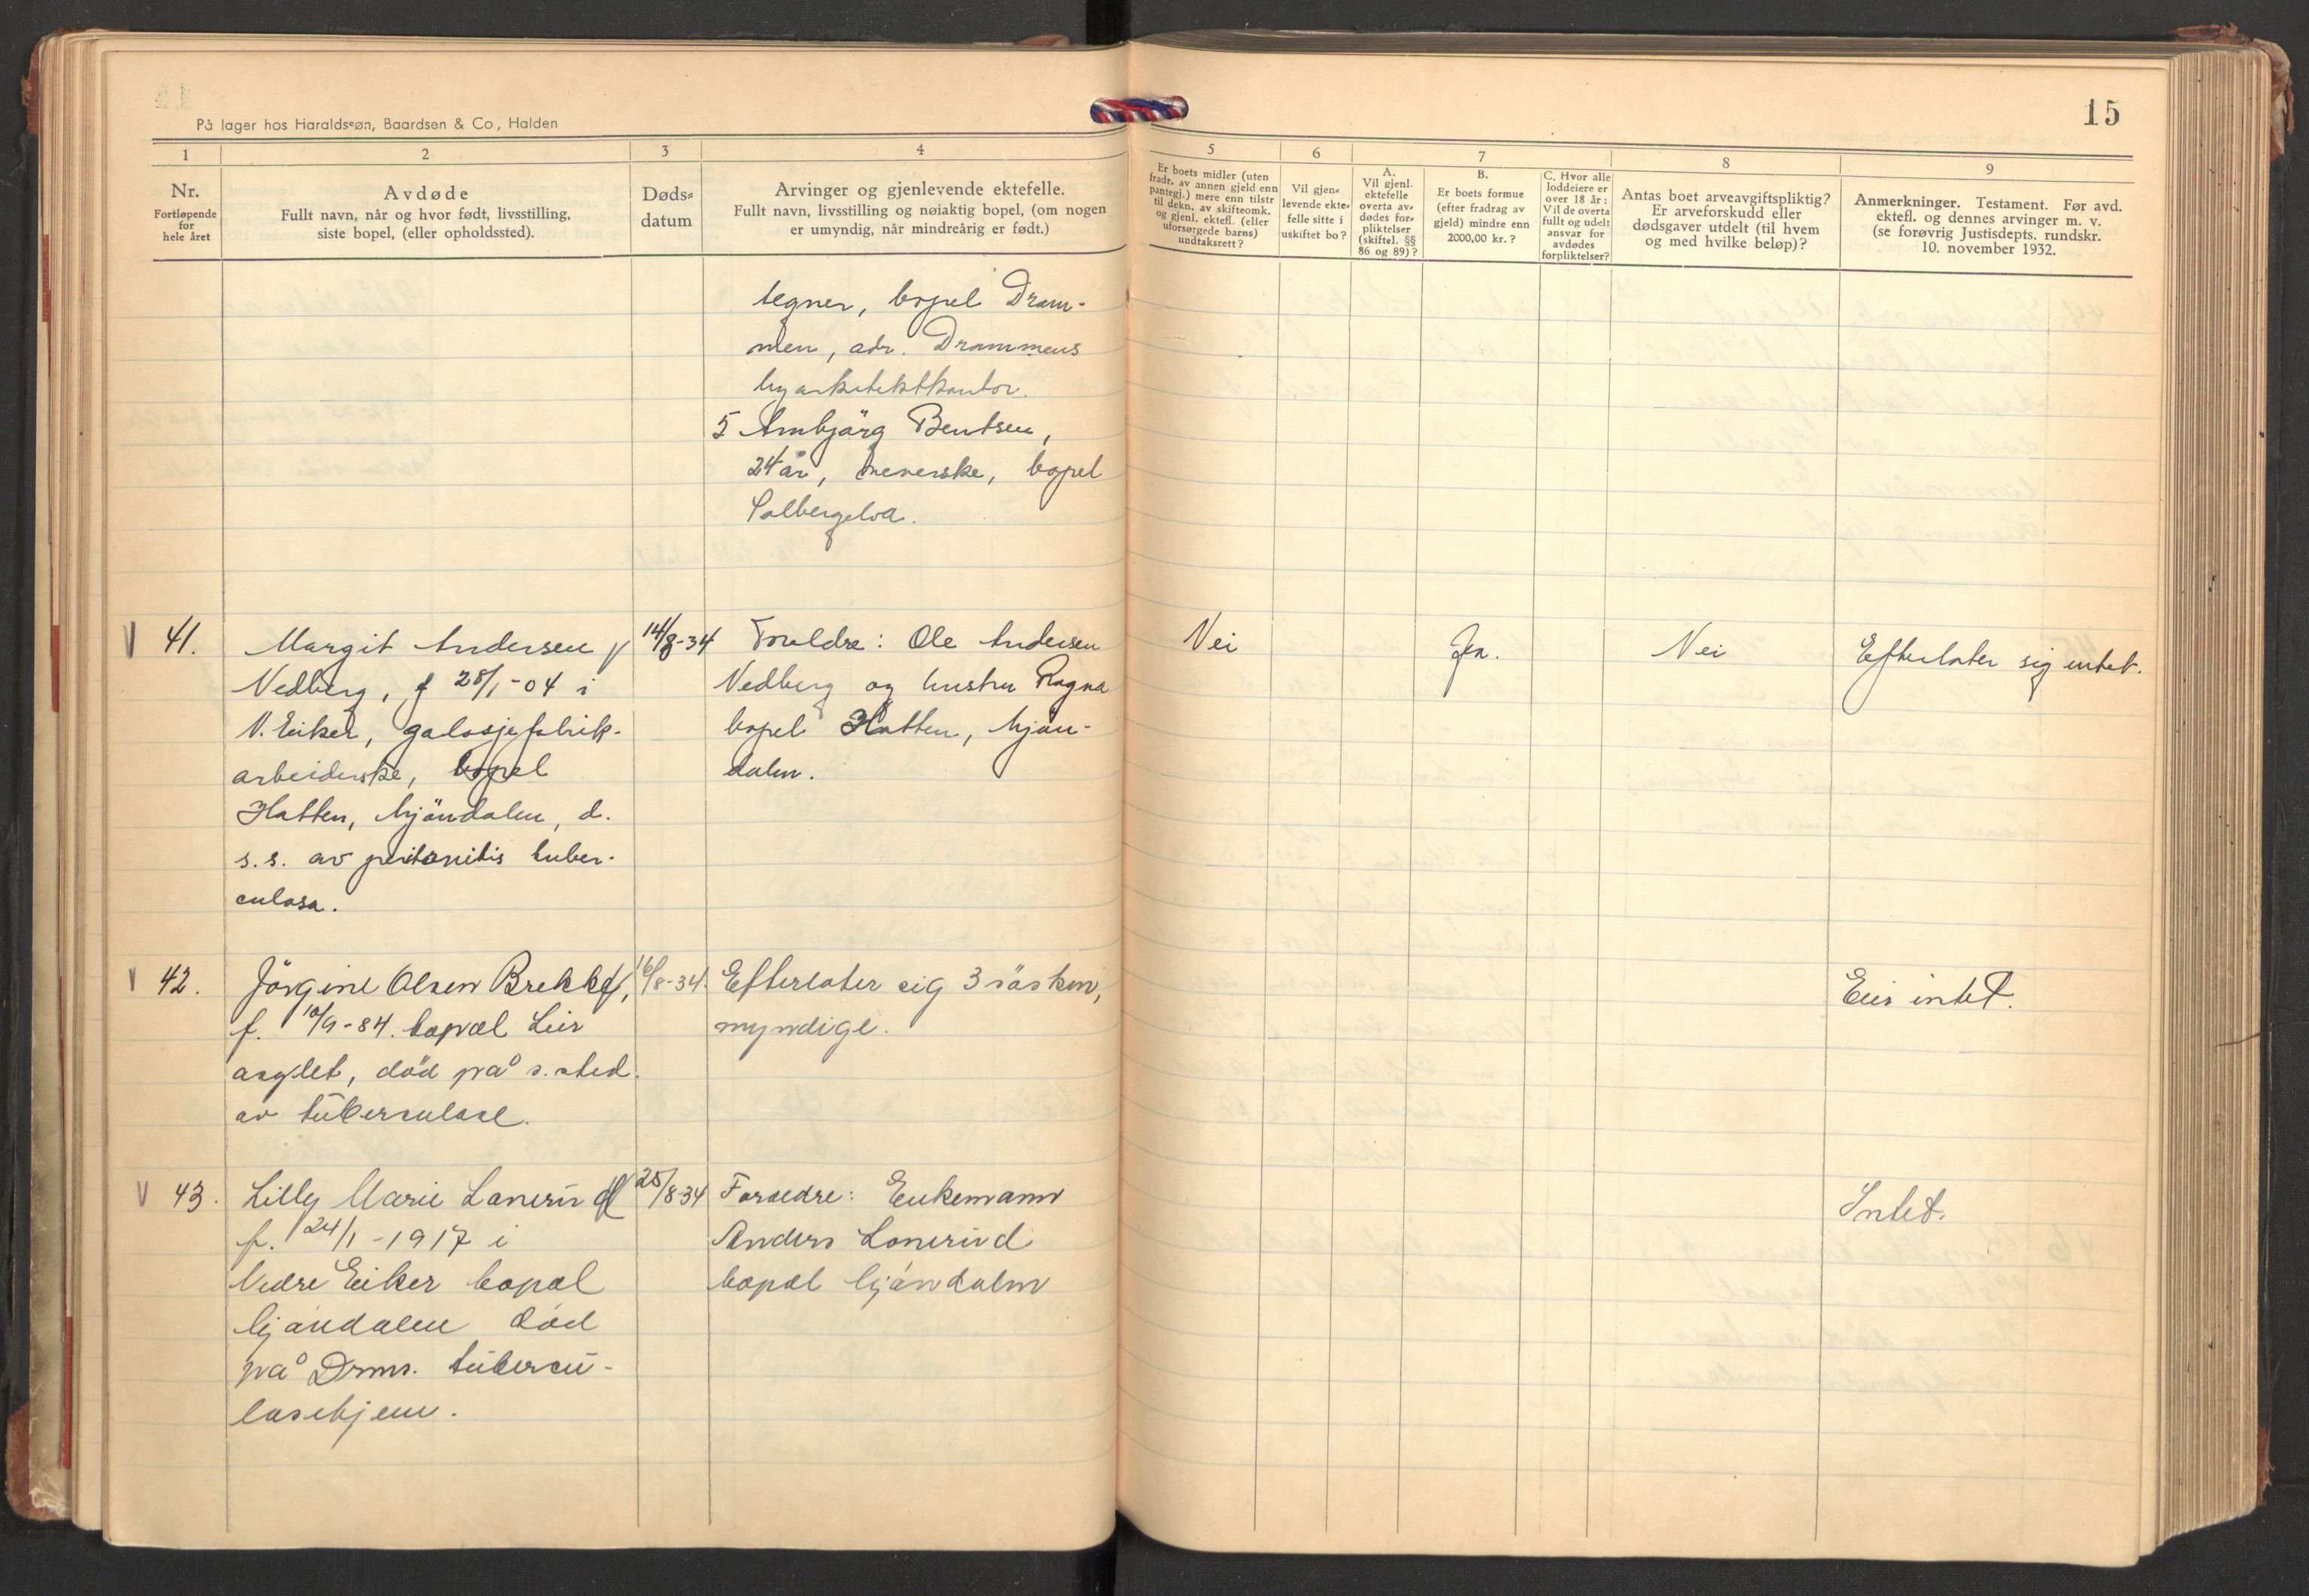 15
På lager hos Haraldssøn, Baardsen & Co, Halden
1
2
3
4
5
6
7
8
9
Nr.
Fortløpende
for
hele året
Avdøde
Fullt navn, når og hvor født, livsstilling,
siste bopel, (eller opholdssted).
Døds-
datum
Arvinger og gjenlevende ektefelle.
Fullt navn, livsstilling og nøiaktig bopel, (om nogen
er umyndig, når mindreårig er født.)
Er boets midler (uten
fradr. av annen gjeld enn
pantegj.) mere enn tilstr
til dekn. av skifteomk.
og gjenl. ektefl. (eller
uforsørgede barns)
undtaksrett?
Vil gjen-
levende ekte-
felle sitte i
uskiftet bo?
A.
Vil gjenl.
ektefelle
overta av-
dødes for-
pliktelser
(skiftel. §§
86 og 89)?
B.
Er boets formue
(efter fradrag av
gjeld) mindre enn
2000,00 kr.?
C. Hvor alle
loddeiere er
over 18 år:
Vil de overta
fullt og udelt
ansvar for
avdødes
forpliktelser?
Antas boet arveavgiftspliktig?
Er arveforskudd eller
dødsgaver utdelt (til hvem
og med hvilke beløp)?
Anmerkninger. Testament. Før avd.
ektefl. og dennes arvinger m. v.
(se forøvrig Justisdepts. rundskr.
10. november 1932.
tegner, bopel Dram-
men, adr. Drammens
byarkitektkontor.
5 Arnbjörg Bentsen,
24 år, veverske, bopel
Solbergelva.
V 41.
Margit Andersen
Nedberg, f 28/1-04 i
N. Eiker, galosjefabrik-
arbeiderske, bopel
Hatten, Mjöndalen, d.
s.s. av peritonitis tuber-
culosa.
14/8-34
Foreldre: Ole Andersen
Nedberg og hustru Ragna
bopel Hatten, Mjön-
dalen.
Nei
Ja.
Nei
Efterlater sig intet.
V 42.
Jörgine Olsen Brekke,
f. 10/9-84. bopæl Leir
asylet, död på s. sted.
av tuberculose.
16/8-34.
Efterlater sig 3 sösken,
myndige.
Eier intet.
V 43.
Lilly Marie Lonerud
f. 24/1-1917 i
Nedre Eiker bopæl
Mjöndalen död
på Drms. tubercu-
losehjem.
25/8-34
Foreldre: Enkemann
Anders Lonerud
bopæl Mjöndalen
Intet.